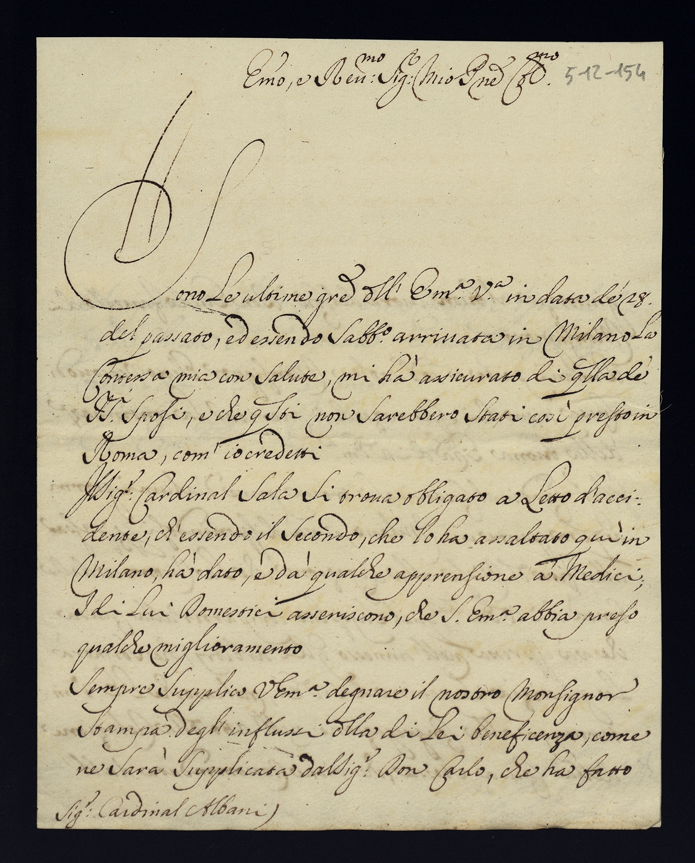 Emo, e Reu:mo Sig:re Mio Pne Colmo 5-12-154
Sono Le ultime gre dll' Em.a V.a in data de' 28.
del passato, ed essendo Sabb.o arrivata in Milano La
Contessa mia con Salute, mi hà assicurato di qlla de
SS.ri Sposi, e che qsti non Sarebbero Stati così presto in
Roma, com' io credetti
Il Sig.r Cardinal Sala Si trova obligato a Letto d'acci-
dente, ch'essendo il Secondo, che lo ha assaltato qui in
Milano, hà dato, e dà qualche apprensione a' Medici;
I di Lui Domestici asseriscono, che S. Em.a abbia preso
qualche miglioramento
Sempre Supplico V Em.a degnare il nostro Monsignor
Stampa degl'influssi dlla di Lei beneficenza, come
ne Sarà Supplicata dal Sig.r Don Carlo, che ha fatto
Sig.r Cardinal Albani)